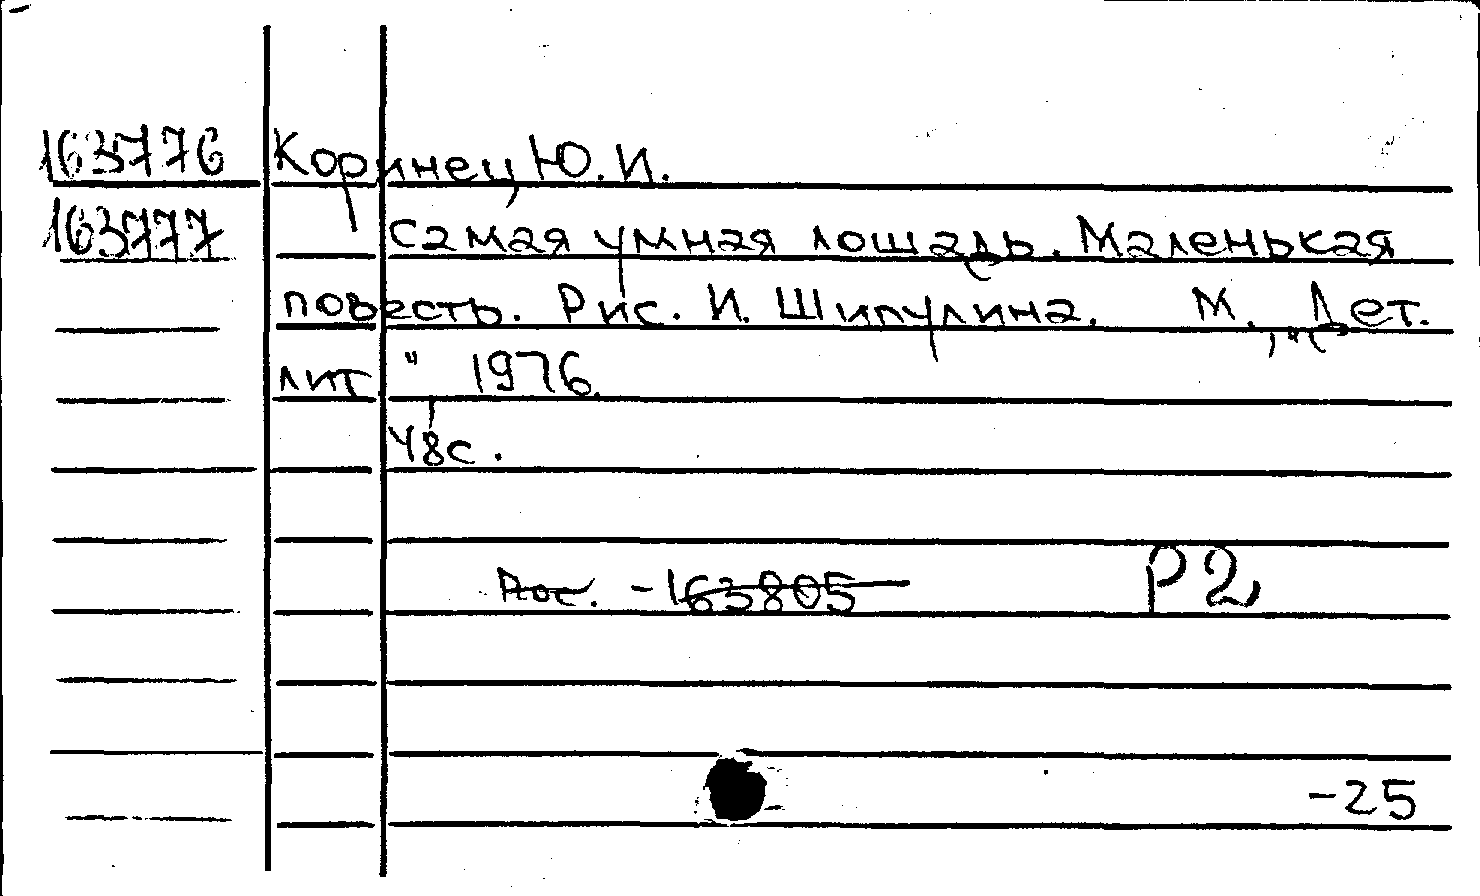 163776 Коринец Ю. И.
163777 Самая умная лошадь. Маленькая
повесть. Рис. И. Шипулина. М., „Дет.
лит" 1976.
48с.
-163805 Р2
-25